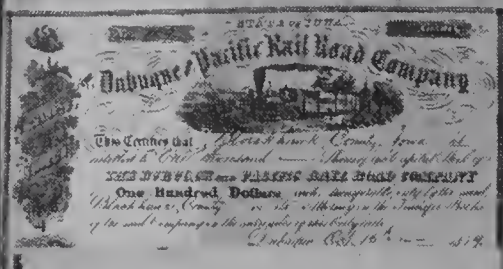 STATE OF IOWA
Dubuque and Pacific Rail Road Company
This Certifies that Black Hawk County Iowa is
entitled to One Thousand Shares of the capital stock of
THE DUBUQUE AND PACIFIC RAIL ROAD COMPANY
One Hundred Dollars each, transferable only by the said
Black Hawk County or its Attorney in the Transfer Books
of the said Company on the surrender of this Certificate
Dubuque Oct. 18